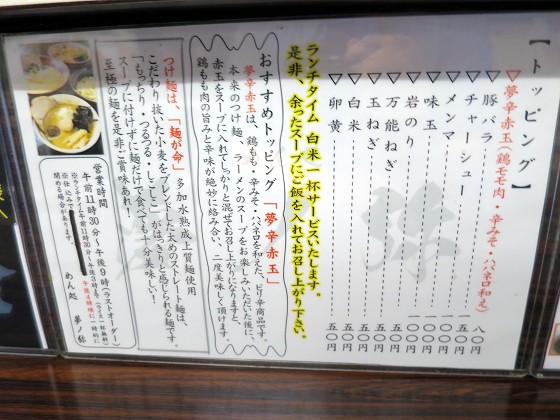 【トッピング】
▽夢辛赤玉(鶏モモ肉・辛みそ・ハバネロ和え)
▽豚バラ 八〇円
▽チャーシュー 一五〇円
▽メンマ 一〇〇円
▽味玉 一〇〇円
▽岩のり 一〇〇円
▽万能ねぎ 五〇円
▽玉ねぎ 五〇円
▽白米 五〇円
▽卵黄 五〇円
ランチタイム 白米一杯サービスいたします。
是非、余ったスープにご飯を入れてお召し上がり下さい。
おすすめトッピング 「夢辛赤玉」
夢辛赤玉は、鶏もも・辛みそ・ハバネロを和えた、ピリ辛商品です。
本来のつけ麺、ラーメンのスープをお楽しみいただいた後に、
赤玉をスープに入れてしっかりと混ぜてお召し上がりになりますと、
鶏もも肉の旨みと辛味が絶妙に絡み合い、二度美味しく頂けます。
つけ麺は、「麺が命」 多加水熟成上質麺使用
こだわり抜いた小麦をブレンドした太めのストレート麺は、
「もっちり・つるつる・しこしこ」がはっきりと感じられる麺です。
スープに付けずに麺だけで食べても十分美味しい!
至極の麺を是非ご賞味あれ!
営業時間
午前11時30分〜午後9時(ラストオーダー)
※ランチタイム午前11時30分〜午後3時
めん処 夢ノ弥